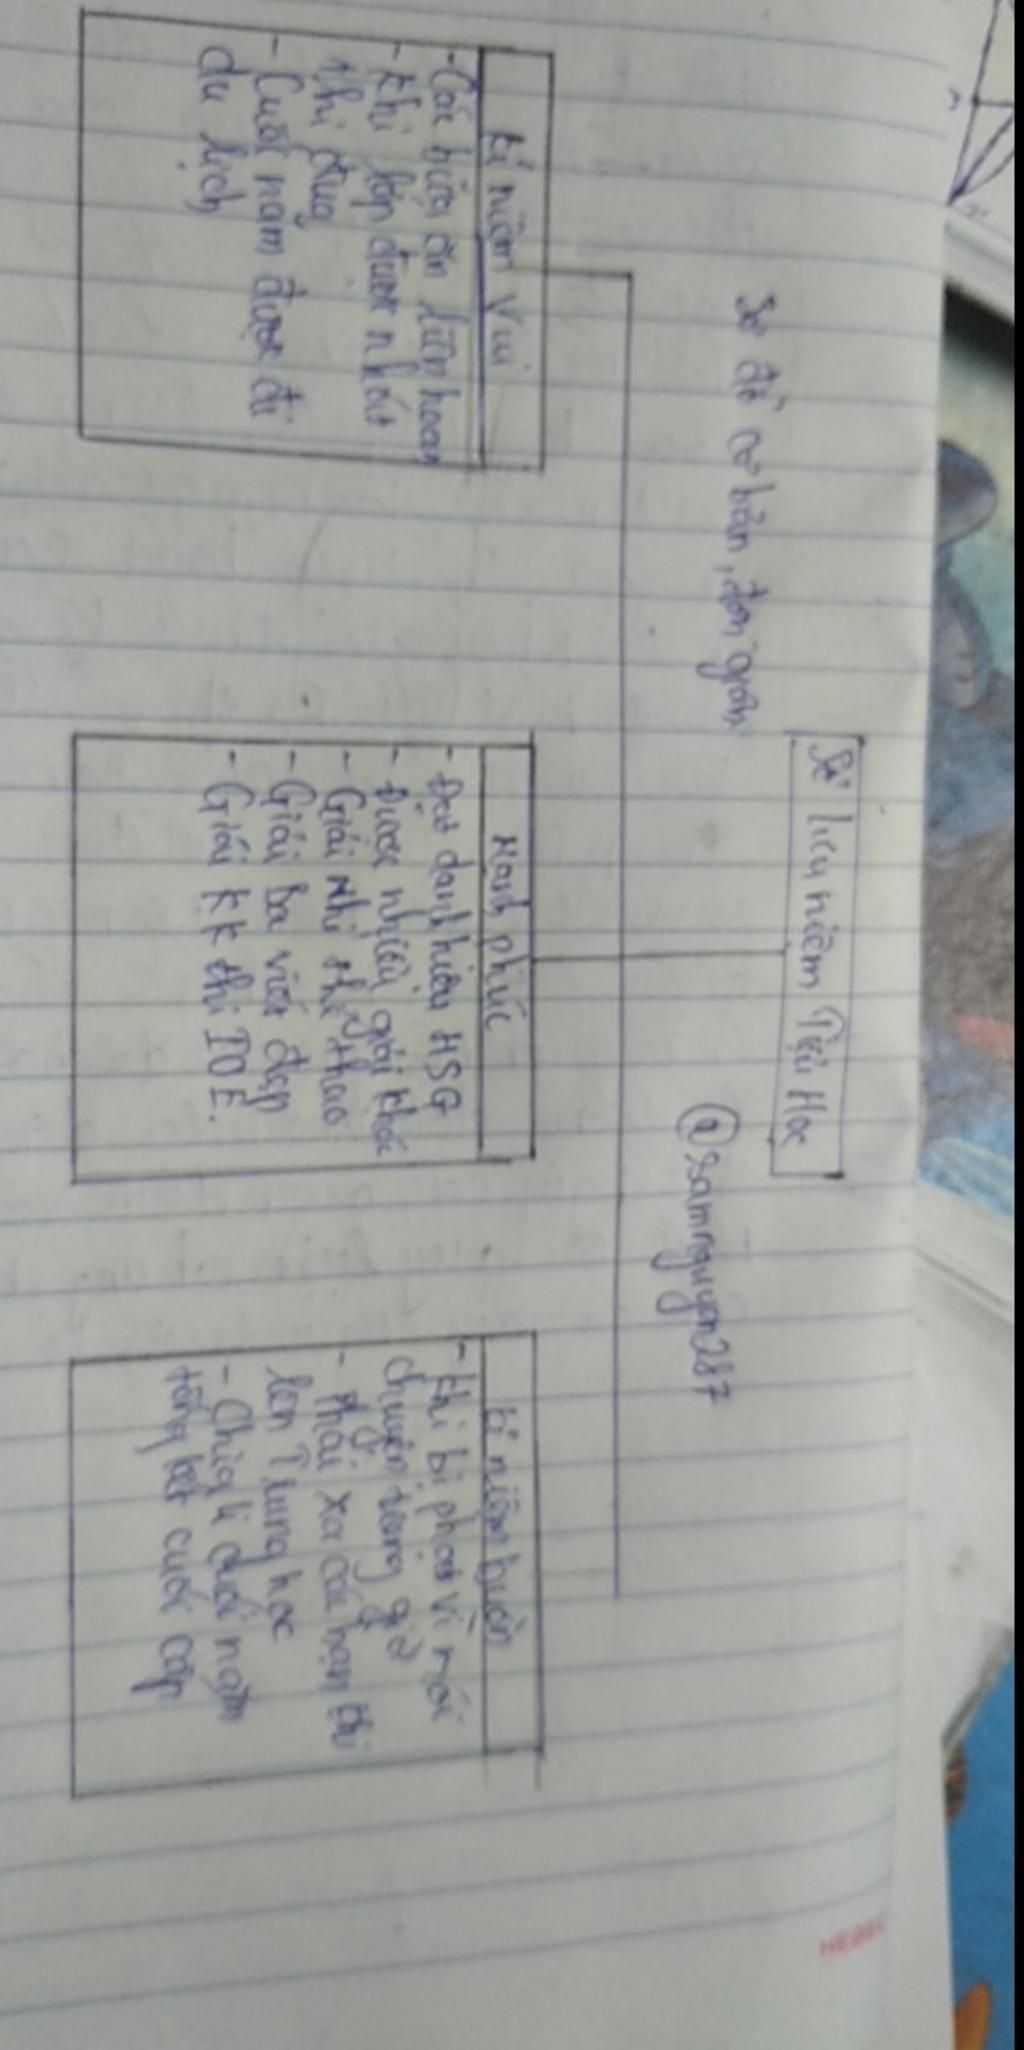 Sổ lưu niệm Tiểu Học
Sơ đồ cơ bản, đơn giản
@samnguyen287
Kỉ niệm vui
- Các buổi ăn liên hoan
- Khi lớp được nhất
thi đua
- Cuối năm được đi
du lịch
Hạnh phúc
- Đạt danh hiệu HSG
- Được nhiều giải khác
- Giải nhì thể thao
- Giải Ba viết đẹp
- Giải KK thi IOE.
Kỉ niệm buồn
- Khi bị phạt vì nói
chuyện trong giờ
- Phải xa các bạn khi
lên Trung học
- Chia li cuối năm
tổng kết cuối cấp